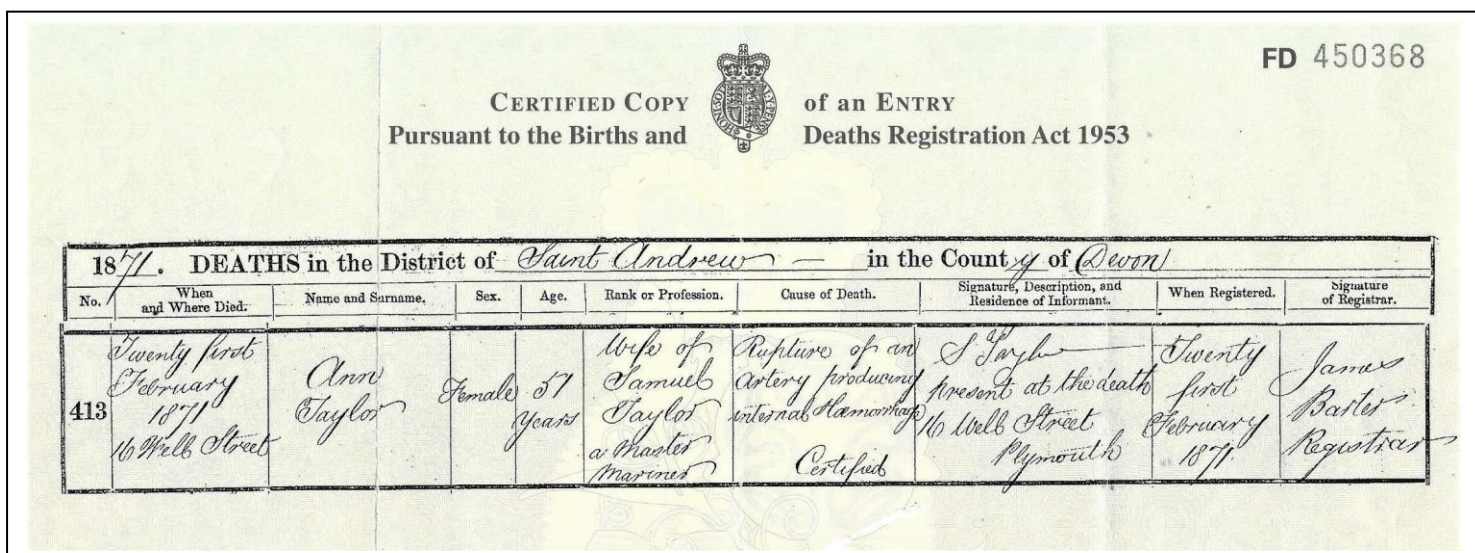 FD 450368
CERTIFIED COPY of an ENTRY
Pursuant to the Births and Deaths Registration Act 1953
1871. DEATHS in the District of Saint Andrew — in the County of Devon
No.
When
and Where Died.
Name and Surname.
Sex.
Age.
Rank or Profession.
Cause of Death.
Signature, Description, and
Residence of Informant.
When Registered.
Signature
of Registrar.
413
Twenty first
February
1871
16 Well Street
Ann
Taylor
Female
57
years
Wife of
Samuel
Taylor
a Master
Mariner
Rupture of an
Artery producing
internal Hæmorrhage
Certified
S Taylor
Present at the death
16 Well Street
Plymouth
Twenty
first
February
1871
James
Barter
Registrar